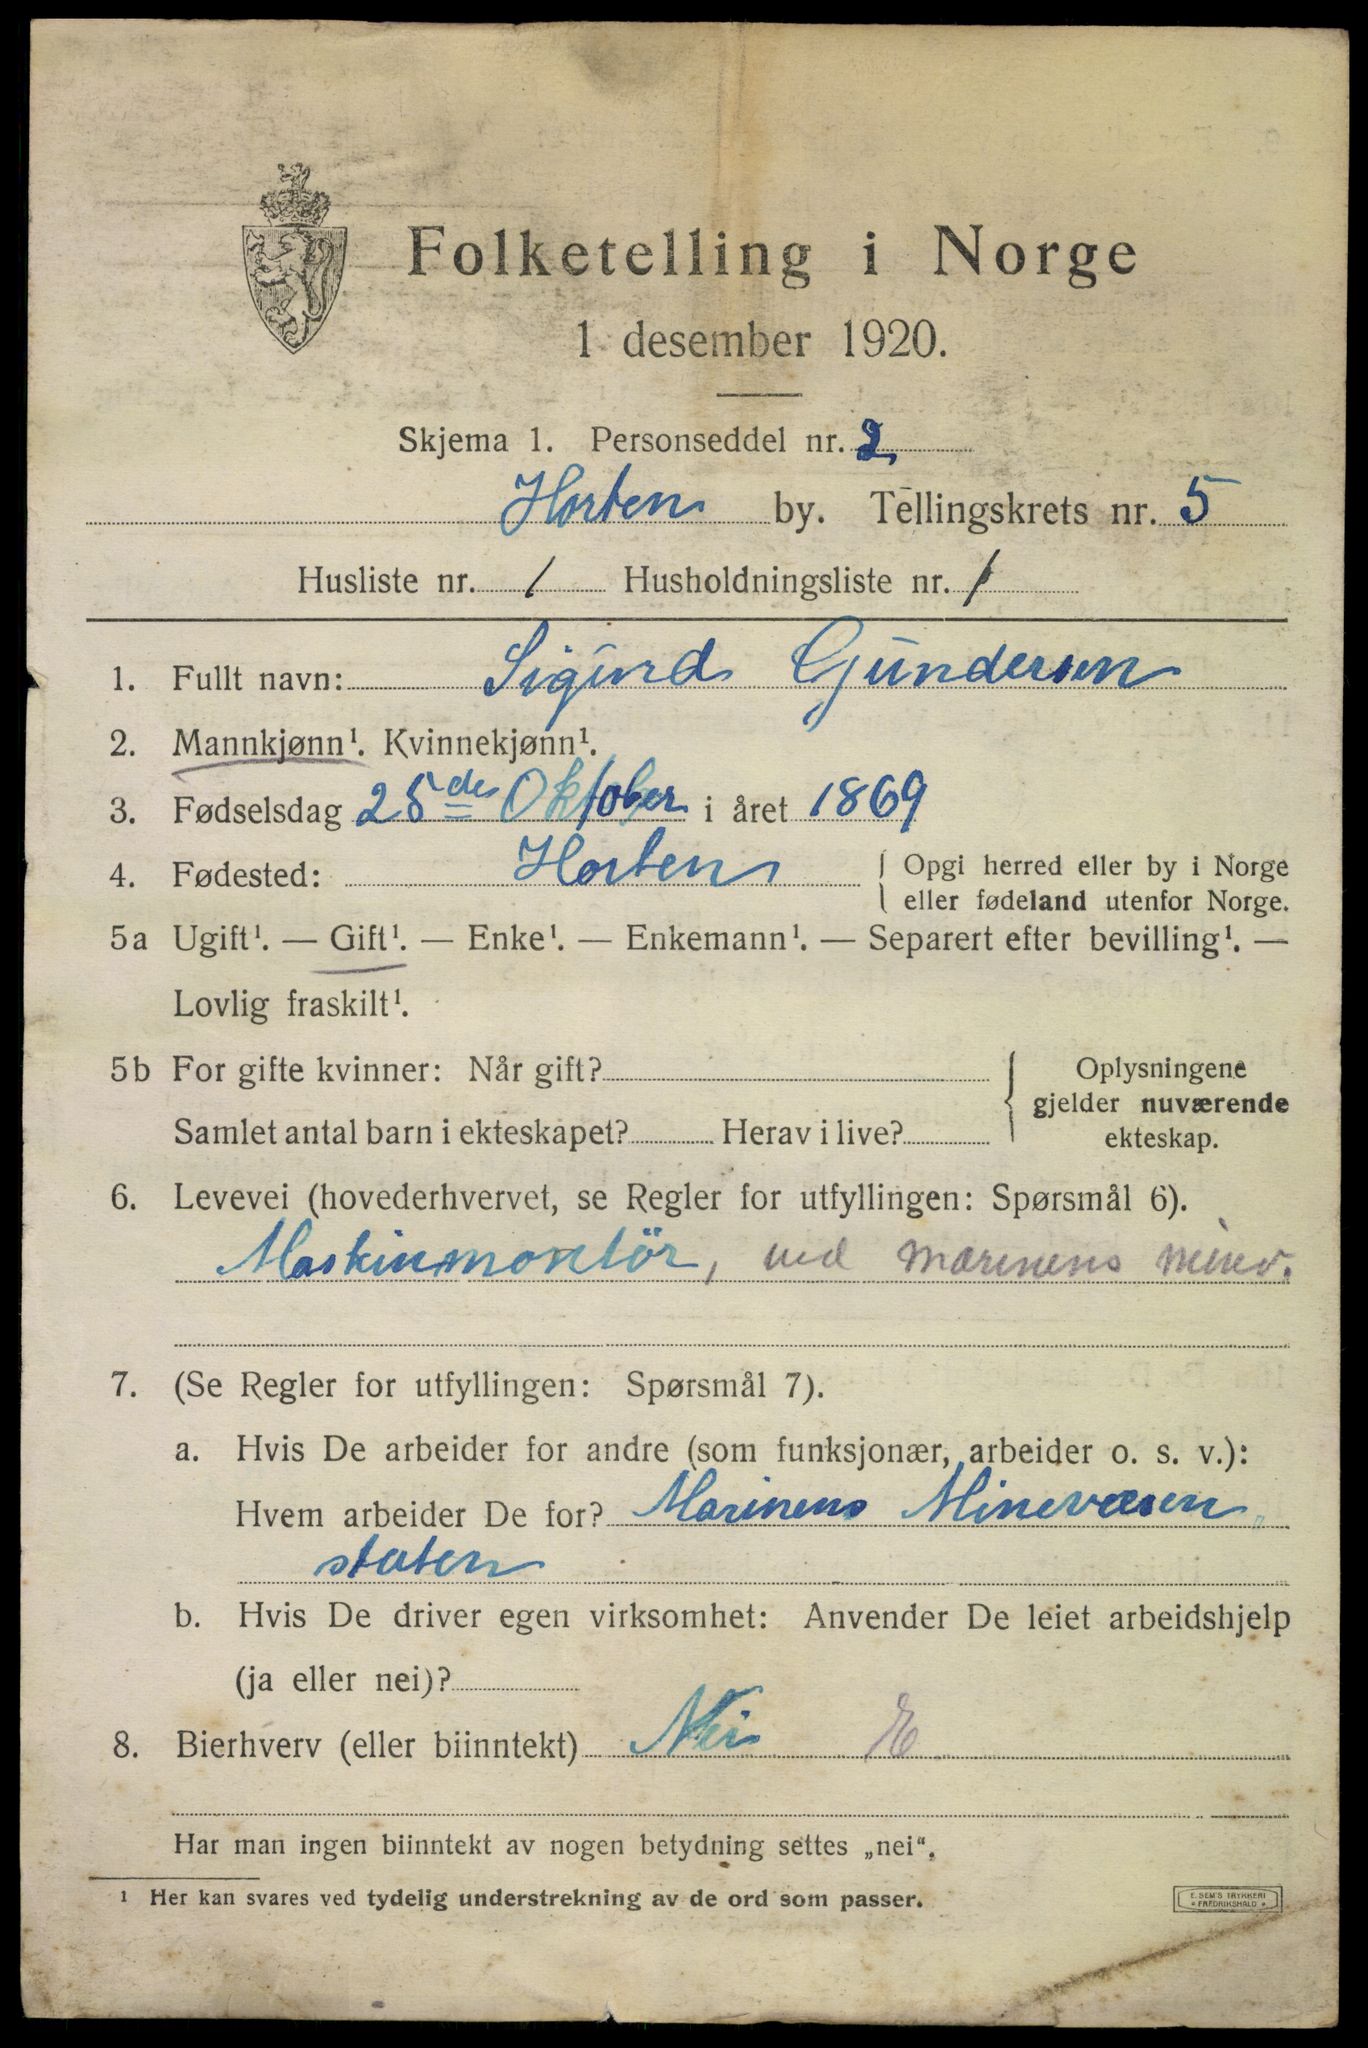 Folketelling i Norge
1 desember 1920.
Skjema 1. Personseddel nr. 2
Horten by. Tellingskrets nr. 5
Husliste nr. 1 Husholdningsliste nr. 1
1. Fullt navn: Sigurd Gundersen
2. Mannkjønn¹. Kvinnekjønn¹.
3. Fødselsdag 25de Oktober i året 1869
4. Fødested: Horten { Opgi herred eller by i Norge
eller fødeland utenfor Norge.
5a Ugift¹. — Gift¹. — Enke¹. — Enkemann¹. — Separert efter bevilling¹. —
Lovlig fraskilt¹.
5b For gifte kvinner: Når gift?
Samlet antal barn i ekteskapet? Herav i live?
Oplysningene
gjelder nuværende
ekteskap.
6. Levevei (hovederhvervet, se Regler for utfyllingen: Spørsmål 6).
Maskinmontör, ved marinens minev.
7. (Se Regler for utfyllingen: Spørsmål 7).
a. Hvis De arbeider for andre (som funksjonær, arbeider o. s. v.):
Hvem arbeider De for? Marinens Minevæsen
staten
b. Hvis De driver egen virksomhet: Anvender De leiet arbeidshjelp
(ja eller nei)?
8. Bierhverv (eller biinntekt) Nei E
Har man ingen biinntekt av nogen betydning settes „nei“.
¹ Her kan svares ved tydelig understrekning av de ord som passer.
E. SEM'S TRYKKERI
* FREDRIKSHALD *